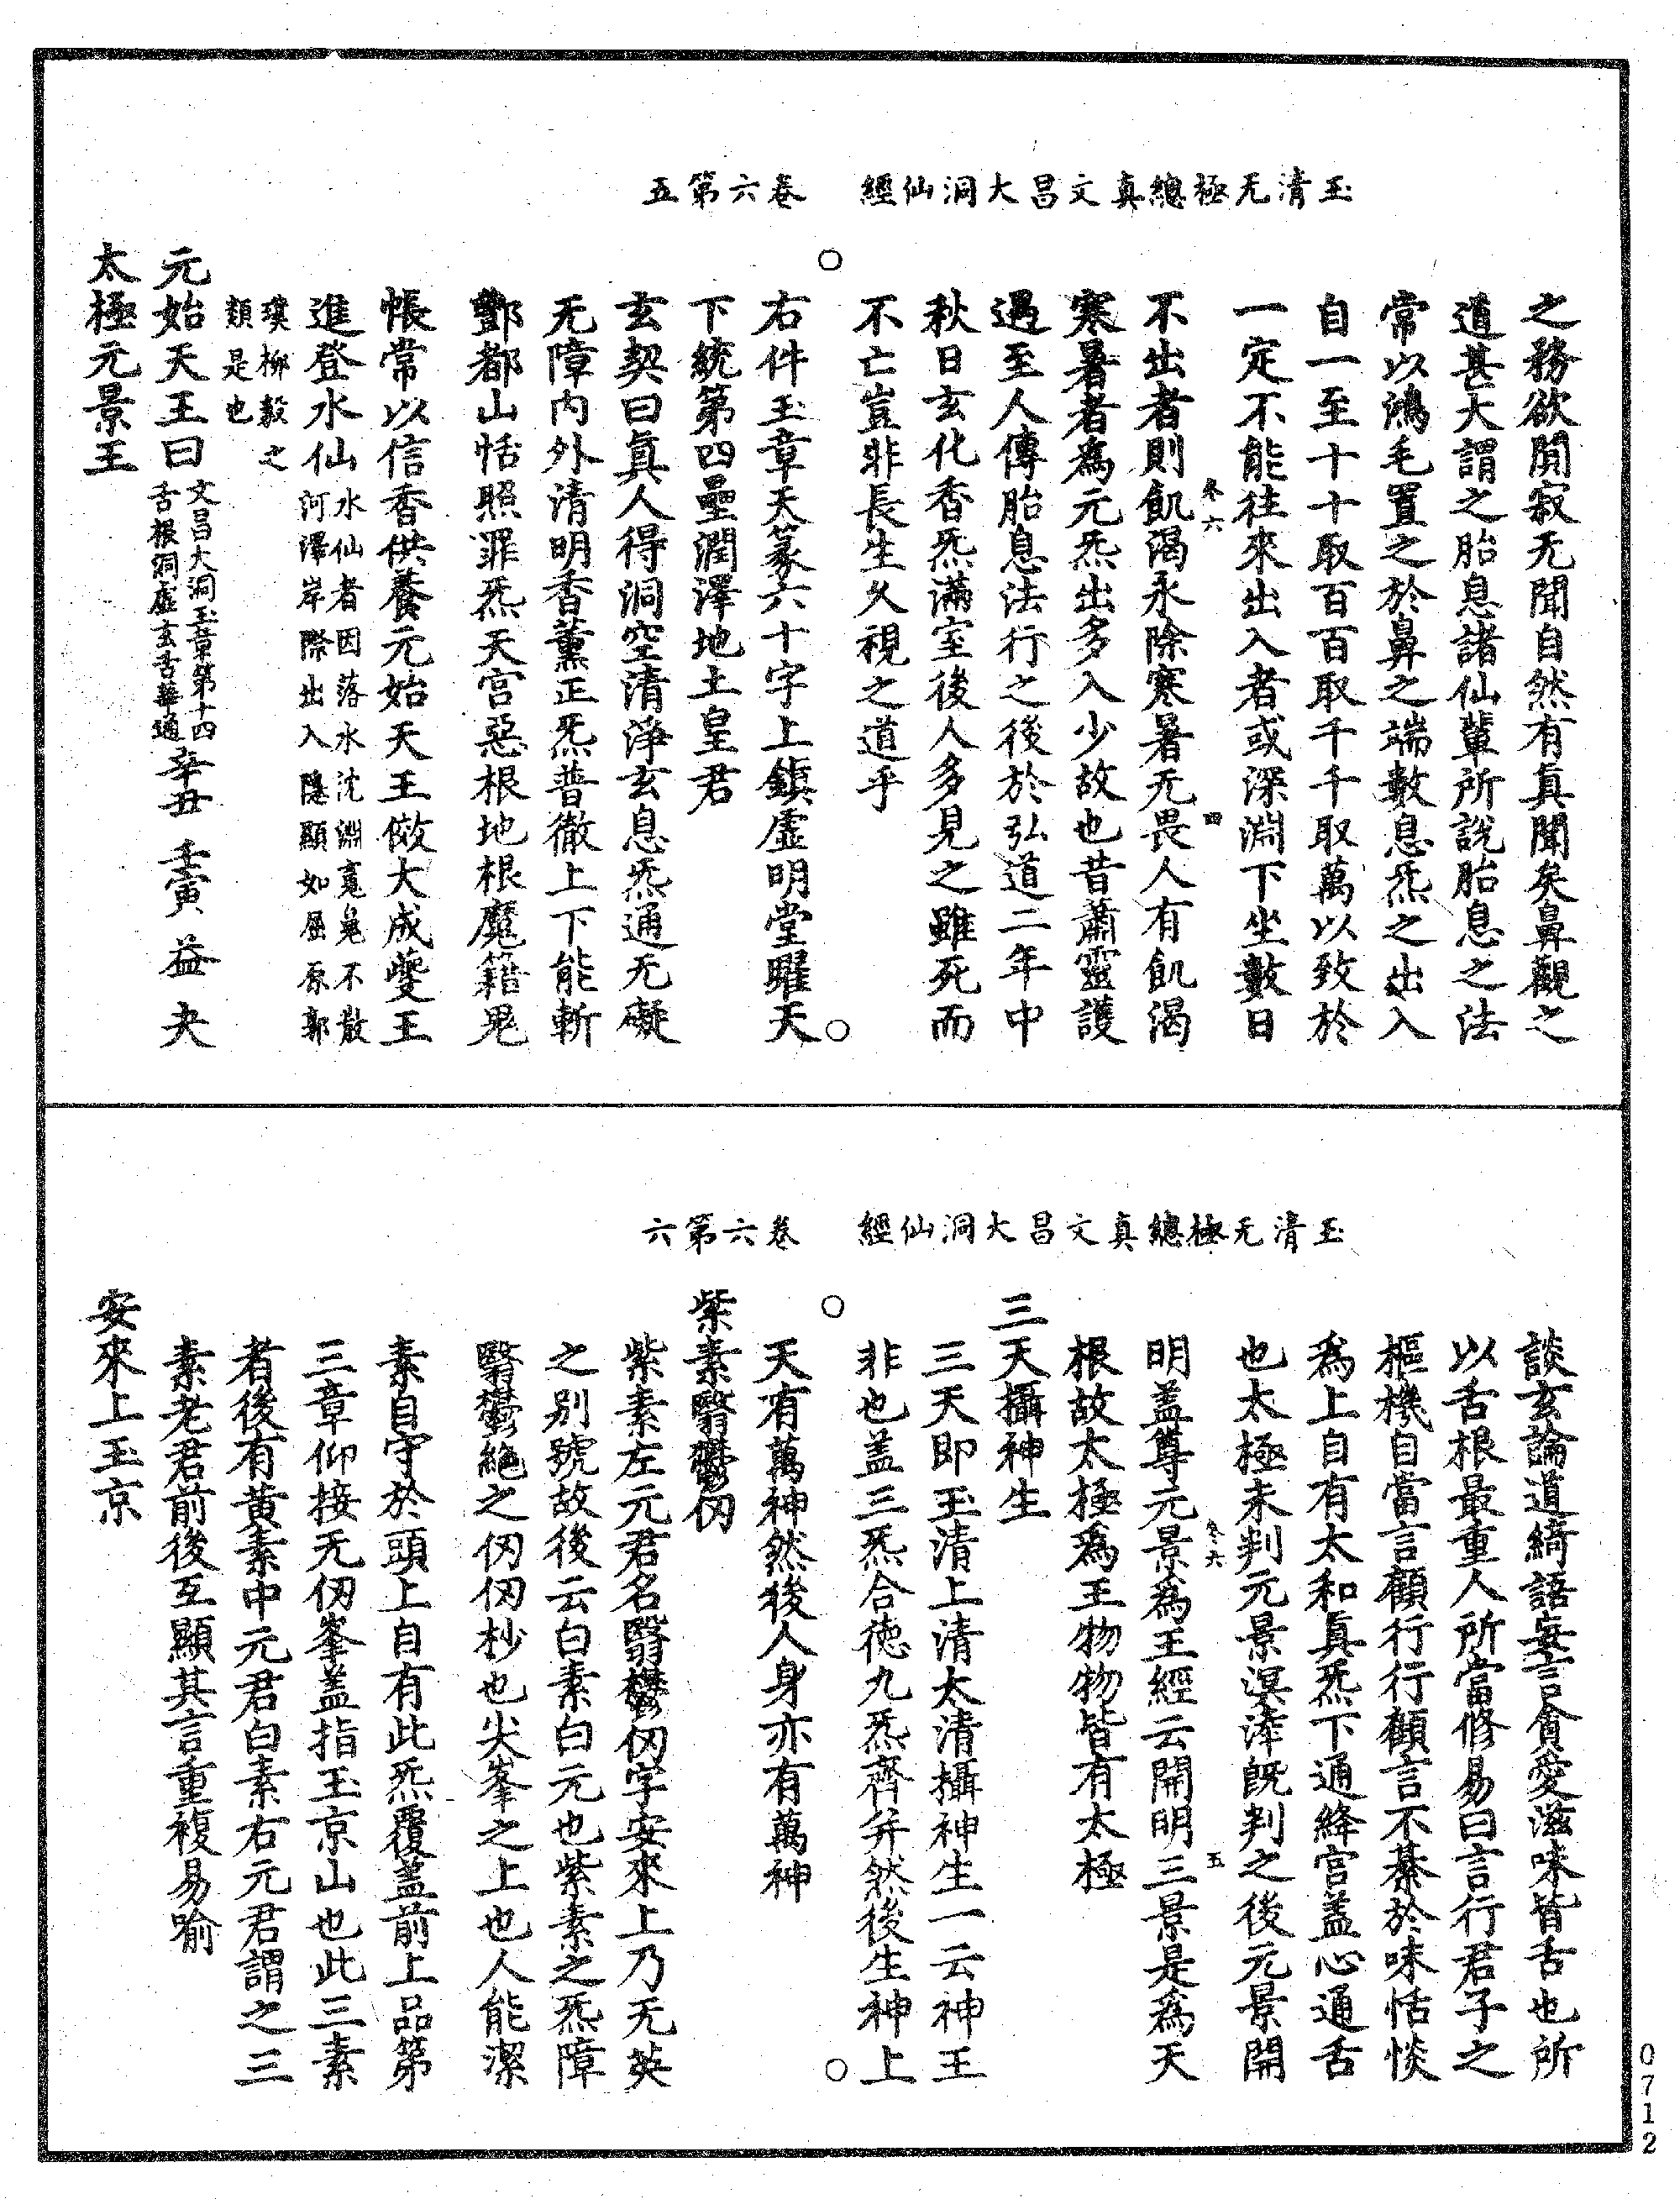 玉清无極總真文昌大洞仙經　卷六第五
之務欲閴寂无聞自然有真聞矣鼻觀之
道甚大謂之胎息諸仙輩所說胎息之法
常以鴻毛置之於鼻之端數息炁之出入
自一至十十取百百取千千取萬以致於
一定不能往來出入者或深淵下坐數日
卷六　四
不出者則飢渴永除寒暑无畏人有飢渴
寒暑者為元炁出多入少故也昔蕭靈護
遇至人傳胎息法行之後於弘道二年中
秋日玄化香炁滿室後人多見之雖死而
不亡豈非長生久視之道乎
○　○
右件玉章天篆六十字上鎮虛明堂曜天
下統第四壘潤澤地土皇君
玄契曰真人得洞空清淨玄息炁通无礙
无障內外清明香薰正炁普徹上下能斬
酆都山恬照罪炁天宮惡根地根魔籍鬼
帳常以信香供養元始天王倣大成夔王
進登水仙水仙者因落水沈淵寃鬼不散
河澤岸際出入隱顯如屈原郭
璞柳毅之
類是也
元始天王曰文昌大洞玉章第十四
舌根洞虛玄舌華通辛丑　壬寅　益　夬
太極元景王
玉清无極總真文昌大洞仙經　卷六第六
談玄論道綺語妄言貪愛滋味皆舌也所
以舌根最重人所當修易曰言行君子之
樞機自當言顧行行顧言不綦於味恬惔
為上自有太和真炁下通絳宮蓋心通舌
也太極未判元景溟涬既判之後元景開
卷六　五
明蓋尊元景為王經云開明三景是為天
根故太極為王物物皆有太極
三天攝神生
三天即玉清上清太清攝神生一云神王
非也蓋三炁合德九炁齊并然後生神上
○　○
天有萬神然後人身亦有萬神
紫素翳鬱仞
紫素左元君名翳鬱仞字安來上乃无英
之別號故後云白素白元也紫素之炁障
翳鬱絕之仞仞杪也尖峯之上也人能潔
素自守於頭上自有此炁覆蓋前上品第
三章仰接无仞峯蓋指玉京山也此三素
者後有黃素中元君白素右元君謂之三
素老君前後互顯其言重複易喻
安來上玉京
0712